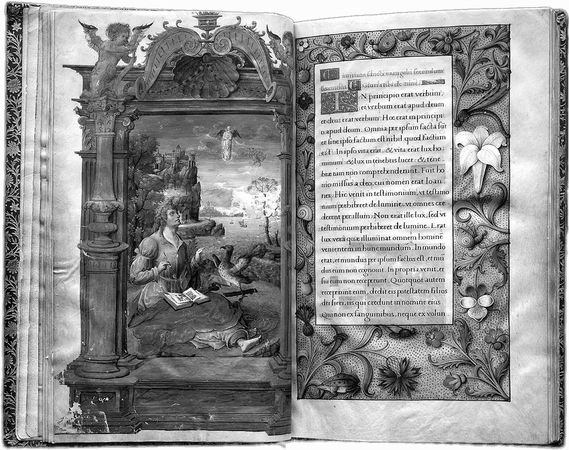 Initium sancti evangelii secundum
IN principio erat verbum,
et verbum erat apud deum
et deus erat verbum: Hoc erat in princi
o apud deum. Omnia per ipsum facta sūt
et sine ipso factum est nihil quod factum
est. In ipso vita erat, & vita erat lux ho
minum: & lux in tenebris lucet, & tene
bræ eam non comprehenderunt. Fuit ho
mo missus a deo, cui nomen erat Ioan
nes. Hic venit in testimonium, ut testimo
nium perhiberet de lumine, ut omnes cre
derent per illum: Non erat ille lux, sed ut
testimonium perhiberet de lumine. Erat
lux vera quæ illuminat omnem hominē
venientem in hunc mundum. In mundo
erat, et mundus per ipsum factus est, et mū
dus eum non cognovit. In propria venit, et
sui eum non receperunt. Quotquot autem
receperunt eum, dedit eis potestatem filios
dei fieri, iis qui credunt in nomine eius
Qui non ex sanguinibus, neque ex volun